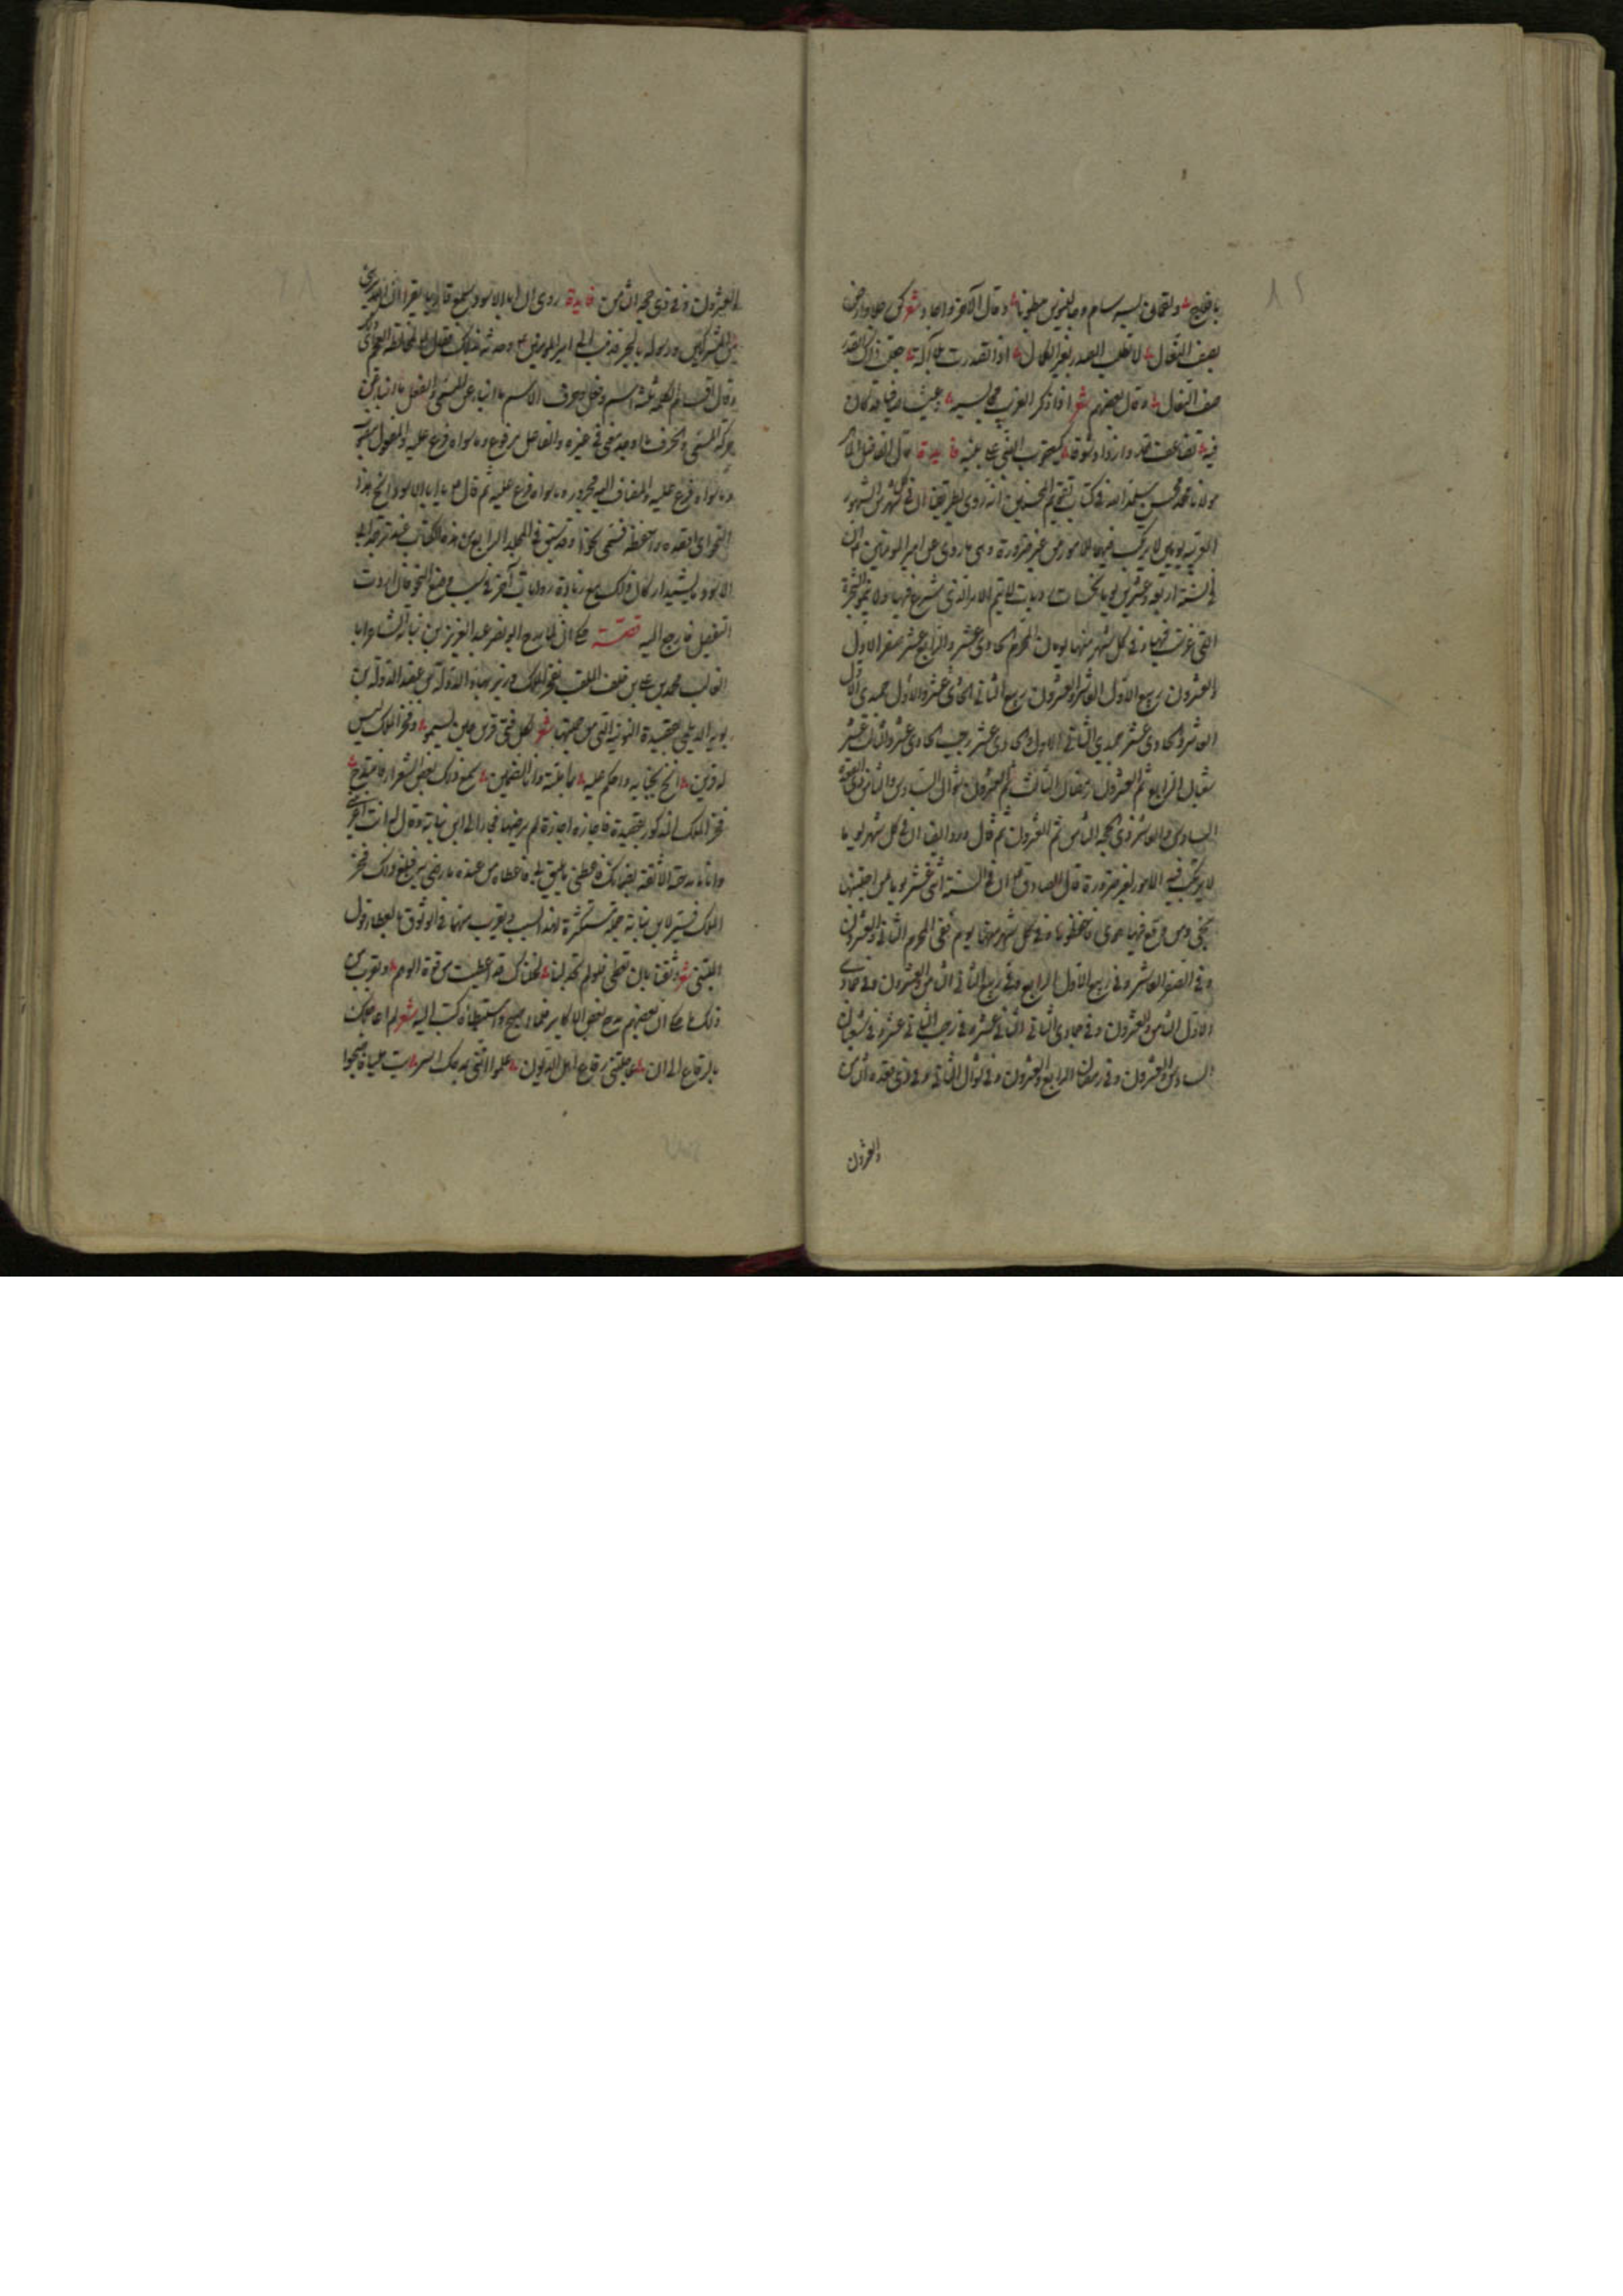 بالفالج ولقمان لبسه سام وجالينوس مبطونا وقال الآخر واجاد شعر كن حلا وارض
بصف النعال لا تطلب الصدر بغير الكمال اذا تصدرت بلا آلة جعلت ذاك الصدر
صف النعال وقال بعضهم شعر اذا ذكر الغريب مجالسيه وعيشا صافيا قد كان
فيه تضاعفت وازداد شوقا فايدة قال الفاضل
مولانا محمد محسن في كتاب تقويم المحسنين انه روى بطريقنا ان في كل شهر من الشهور
العربية يومين لا يرتكب فيهما الامور من غير ضرورة وهي ما روى عن امير المؤمنين ان
في السنة اربعة وعشرين يوما نحسات لا يتم الامر الذي شرع فيها ولا ينمو الشجرة
التي غرست فيها وفي كل شهر منها يومان المحرم الحادي عشر والرابع عشر صفر الاول
والعشرون ربيع الاول العاشر والعشرون ربيع الثاني الحادي عشر والاول جمدي الاول
العاشر والحادي عشر جمدي الثاني الاول والحادي عشر رجب الحادي عشر والثالث عشر
شعبان الرابع ثم العشرون رمضان الثالث ثم العشرون شوال السادس والثامن ذي القعدة
السادس والعاشر ذي الحجه الثامن ثم العشرون ثم قال وورد ايضا ان في كل شهر يوما
لا يرتكب فيه الامور بغير ضرورة قال الصادق ان في السنة اثني عشر يوما من اجتنبها
نجى ومن وقع فيها هوى فاحفظوها وفي كل شهر منها يوم ففي المحرم الثاني والعشرون
وفي الصفر العاشر وفي ربيع الاول الرابع وفي ربيع الثاني الثامن والعشرون وفي جمادى
الاول الثامن والعشرون وفي جمادى الثاني الثاني عشر وفي رجب الثاني عشر وفي شعبان
السادس والعشرون وفي رمضان الرابع والعشرون وفي شوال الثاني وفي ذي قعده الثامن
والعشرون
والعشرون وفي ذي حجه الثامن فايدة روى ان ابا الاسود سمع قاريا يقرا ان الله بريء
من المشركين ورسوله بالجر فذهب الى امير المؤمنين وحدثه بذلك فقال لمخالطة العجم
وقال اقسام الكلمة ثلثة اسم وفعل وحرف الاسم ما انبأ عن المسمى والفعل ما انبأ عن
حركة المسمى والحرف ما اوجد معنى في غيره والفاعل مرفوع وما سواه فرع عليه والمفعول منصوب
وما سواه فرع عليه والمضاف اليه مجرور وما سواه فرع عليه ثم قال يا ابا الاسود انح هذا
النحو اي اقصده واحفظه فسمى نحوا وقد سبق في المجلد الرابع من هذا الكتاب عند ترجمة ابي
الاسود مع زيادة روايات آخر في سبب وضع النحو فان اردت
التفصيل فارجع اليه قصته حكى انه لما مدح ابو نصر عبد العزيز بن نباته الشاعر ابا
الغالب محمد بن علي بن خلف الملقب بفخر الملك وزير بهاء الدوله بن عضد الدولة بن
بويه الديلمي بقصيدة النونية التي من جملتها شعر لكل فتى قرين حين يسمو وفخر الملك ليس
له قرين انخ بجنابه واحكم عليه بما املته وانا الضمين سمع ذلك بعض الشعراء فامتدح
فخر الملك المذكور بقصيدة فاجازه اجازة لم يرضها فجاء الى ابن نباته وقال له انت
وانا ما مدحته الا ثقة بضمانك فاعطني ما يليق بي فاعطاه من عنده ما رضى به فبلغ ذلك فخر
الملك فسير لابن نباته جملة مستكثرة لهذا السبب ويقرب منها في الوثوق بالعطاء قول
المتنبي شعر وثقنا بان تعطي فلو لم تجد لنا لخلناك قد اعطيت من قوة الوهم ويقرب من
ذلك ما حكى ان بعضهم مدح بعض الاكابر فلما اصبح واستبطاه كتب اليه شعر لم اعاجلك
بالرقاع الى ان عاجلتني رقاع اهل الديون علموا انني بمدحك امسيت مليا فاصبحوا